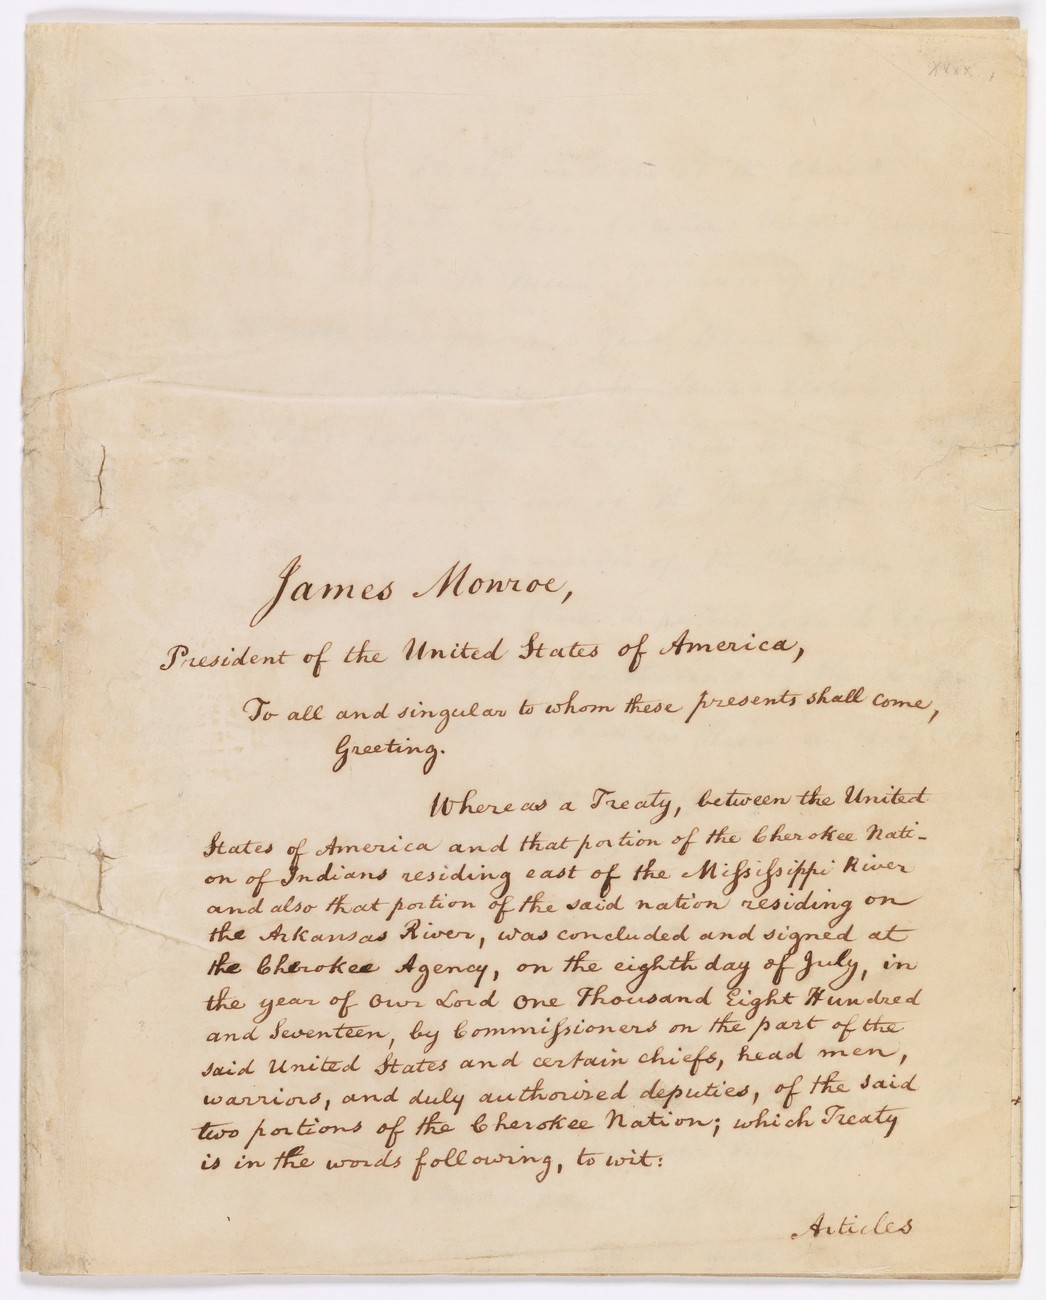 James Monroe,
President of the United States of America,
To all and singular to whom these presents shall come,
Greeting.
Whereas a Treaty, between the United
States of America and that portion of the Cherokee Nati-
on of Indians residing east of the Mississippi River
and also that portion of the said nation residing on
the Arkansas River, was concluded and signed at
the Cherokee Agency, on the eighth day of July, in
the year of our Lord One Thousand Eight Hundred
and Seventeen, by Commissioners on the part of the
said United States and certain chiefs, head men,
warriors, and duly authorized deputies, of the said
two portions of the Cherokee Nation; which Treaty
is in the words following, to wit:
Articles